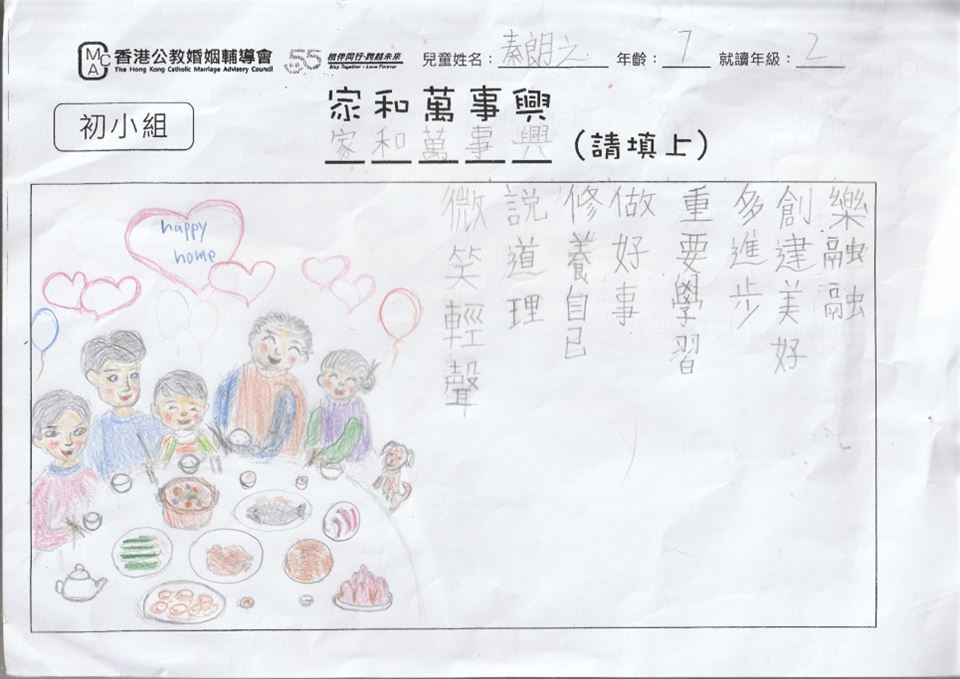 MCAC
香港公教婚姻輔導會
The Hong Kong Catholic Marriage Advisory Council
55
相伴同行·跨越未來
Stay Together · Love Forever
兒童姓名：秦朗之 年齡：7 就讀年級：2
初小組
家和萬事興
家和萬事興（請填上）
樂融融
創建美好
多進步
重要學習
做好事
修養自己
説道理
微笑輕聲
happy
home